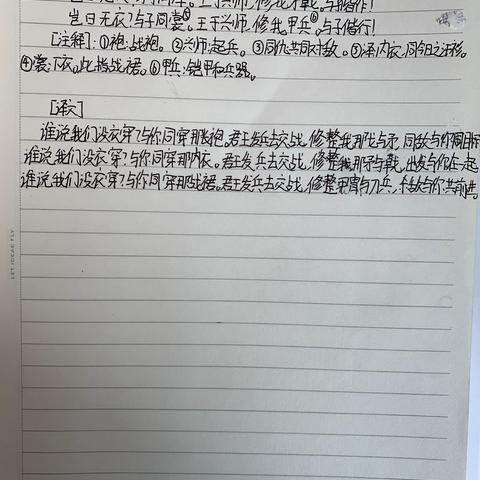 王于兴师,修我矛戟,与子偕作!
岂曰无衣?与子同裳④。王于兴师,修我甲兵⑥。与子偕行!
[注释]:①袍:战袍。②兴师:起兵。③同仇:共同对敌。⑤泽:内衣,同今日之汗衫。
④裳:下衣,此指战裙。⑥甲兵:铠甲和兵器。
[译文]
谁说我们没衣穿?与你同穿那战袍。君王发兵去交战,修整我那戈与矛,同敌与你同目标
谁说我们没衣穿?与你同穿那内衣。君王发兵去交战,修整我那矛与戟,出发与你在一起
谁说我们没衣穿?与你同穿那战裙。君王发兵去交战,修整甲胄与刀兵,杀敌与你共前进
LET IDEAS FLY